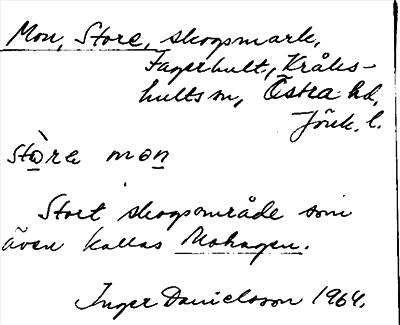 Mon, Store, skogsmark,
Fagerhult, Kråks-
hults sn, Östra hd,
Jönk. l.
stòra mon
Stort skogsområde som
även kallas Mohagen.
Inger Danielsson 1964.